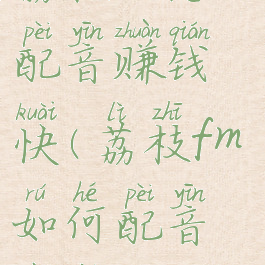 pèi yīn zhuàn qián
配音赚钱
kuài lì zhī
快(荔枝fm
rú hé pèi yīn
如何配音